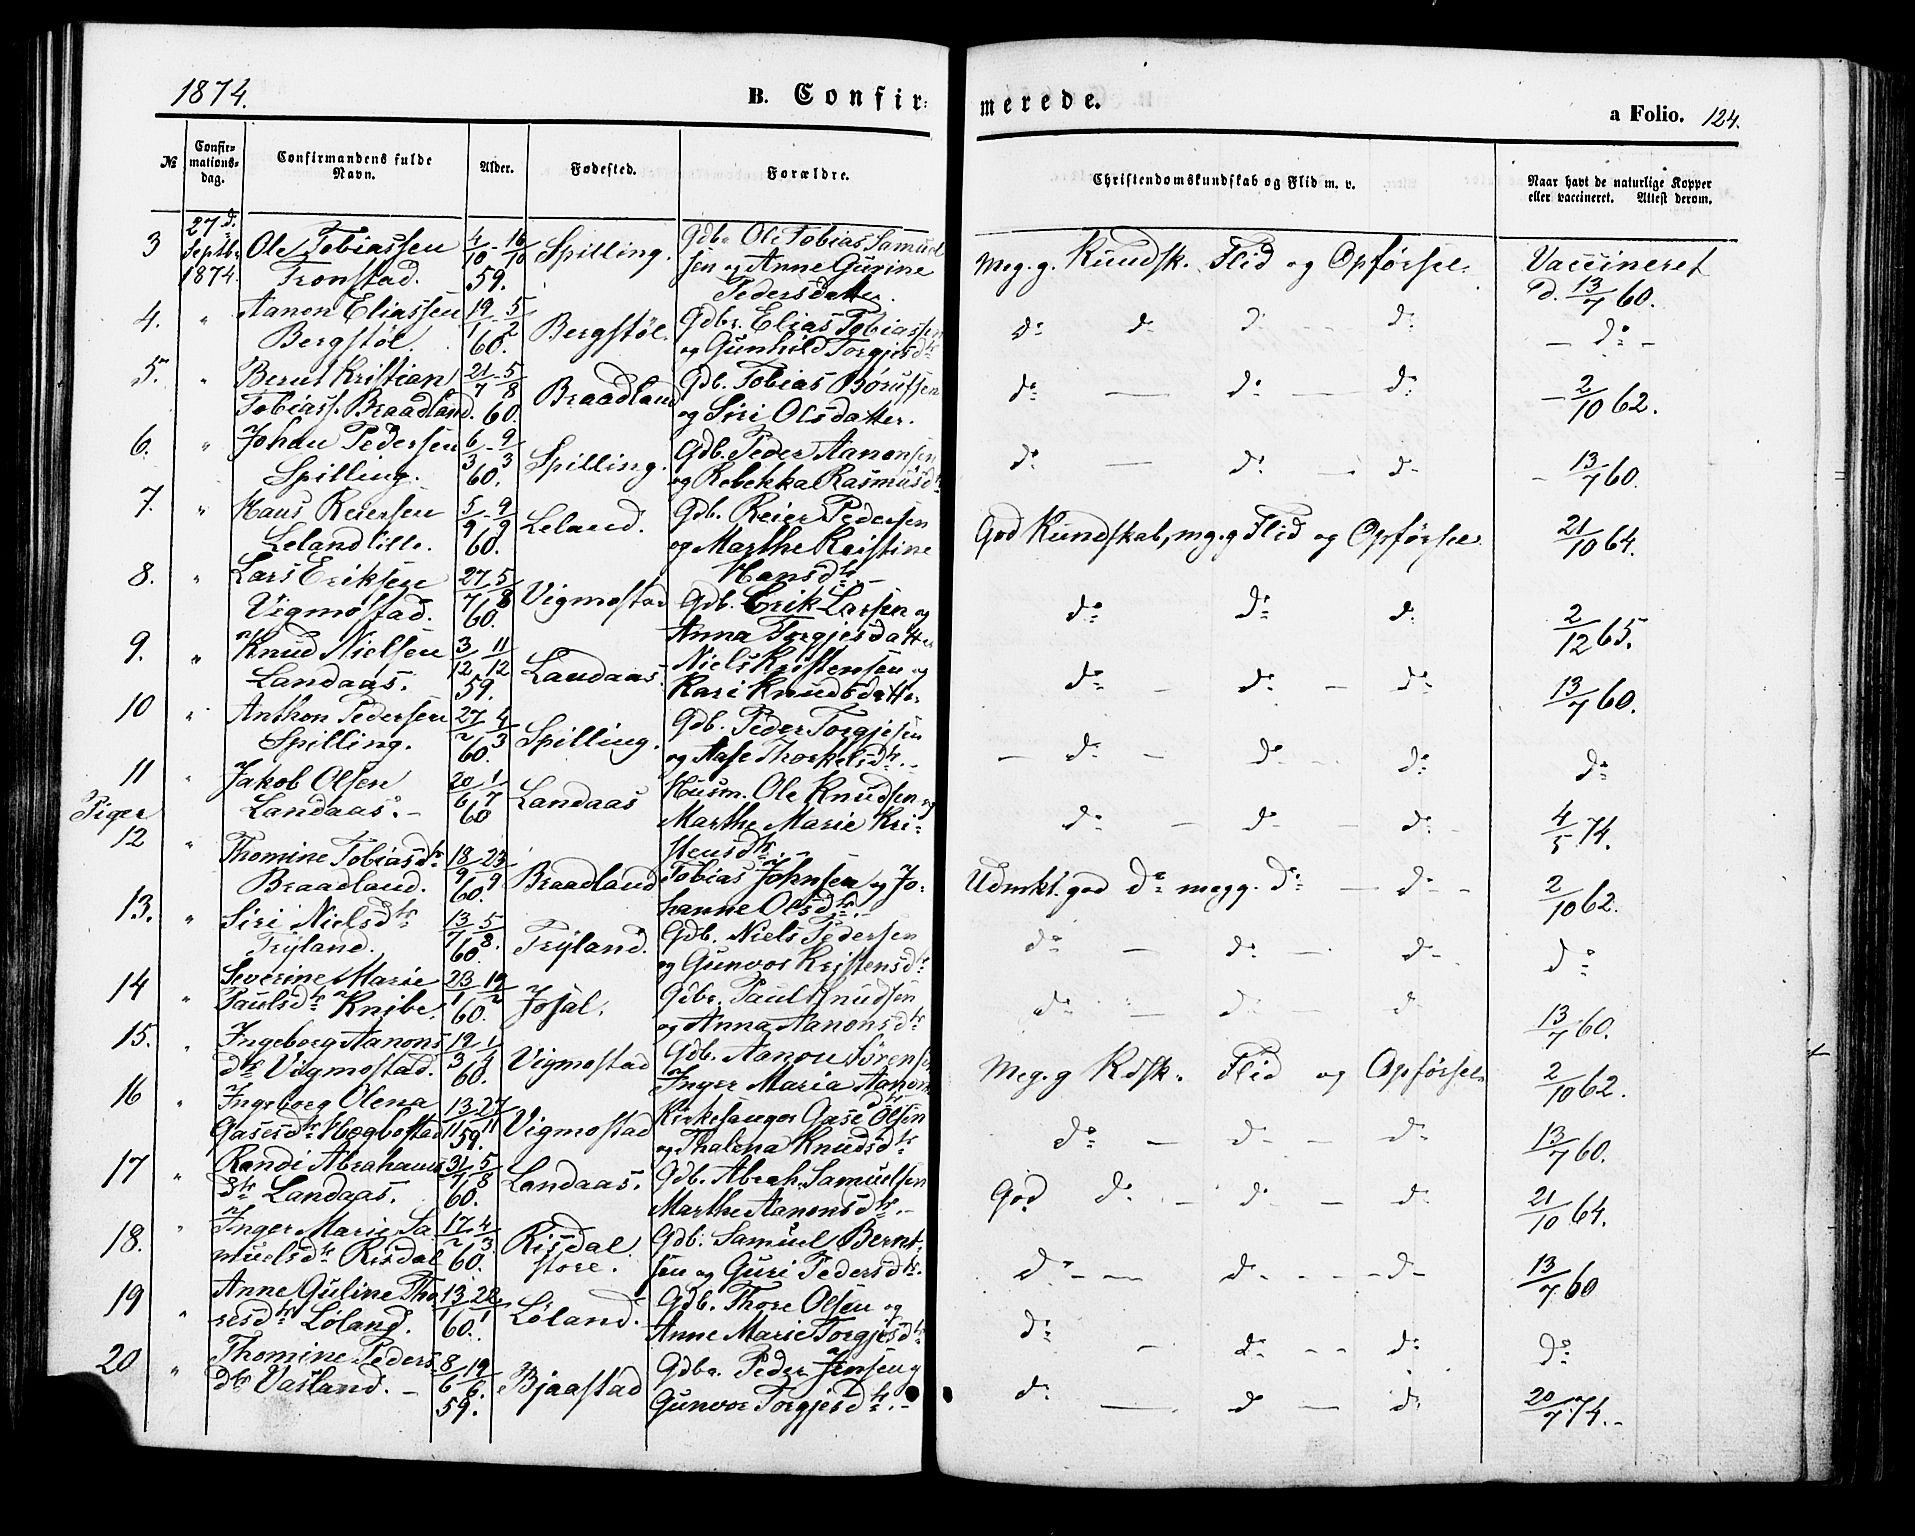 1874.
B. Confir-
merede.
a Folio. 124.
№ Confirmations-dag. Confirmandens fulde Navn. Alder. Fødested. Forældre. Christendomskundskab og Flid m. v. Naar havt de naturlige Kopper eller vaccineret. Attest derom.
3 27d. Septbr 1874. Ole Tobiassen Tronstad. 4/10 - 16/10 59. Spilling. Gdbr Ole Tobias Samuelsen og Anne Gurine Pedersdatter. Meg. g. Kundsk. Flid og Opførsel. Vaccineret d. 13/7 60.
4. " Aanon Eliassen Bergstøl. 19/1 - 5/2 60. Bergstøl. Gdbr. Elias Tobiassen og Gunhild Torgjesdtr do do do do - do -
5. " Bernt Kristian Tobiass. Braadland. 21/7 - 5/8 60. Braadland Gdb. Tobias Børufsen og Siri Olsdatter. do — do - do - 2/10 62.
6. " Johan Pedersen Spilling. 6/3 - 9/3 60. Spilling. Gdb. Peder Aanonsen og Rebekka Rasmusdtr do — do - do - 13/7 60.
7. " Hans Reiersen Leland lille. 5/9 - 9/9 60. Leland. Gdb. Reier Pedersen og Marthe Kristine Hansdtr. - God Kundskab, mg. g Flid og Opførsel 21/10 64.
8. " Lars Eriksen Vigmostad. 27/7 5/8 60. Vigmostad Gdb. Erik Larsen og Anna Torgjesdatter do do do 2/12 65.
9. " Knud Nielsen Landaas. 3/12 11/12 59. Landaas. Niels Kristensen og Kari Knudsdatter do - do - do 13/7 60.
10 " Anthon Pedersen Spilling. 27/2 4/3 60. Spilling. Gdb. Peder Torgjesen og Aase Thorkelsdtr. - - do - do - do do
11 " Jakob Olsen Landaas. - 20/6 1/7 60 Landaas Husm. Ole Knudsen og Marthe Marie Kristensdtr. - do - do - do - 4/5 74.
Piger
12 " Thomine Tobiasdtr Braadland. 18/9 23/9 60. Braadland Tobias Johnsen og Johanne Olsdtr. - Udmkt. god do megg. do - do - 2/10 62.
13. " Siri Nielsdtr Tryland. 13/7 5/8. 60. Tryland. Gdb. Niels Pedersen og Gunvor Kristensdtr do - do - do do
14 " Severine Marie Paulsdtr Knibe. 23/1 19/2 60. Josal. Gdbr. Paul Knudsen og Anna Aanonsdtr do - do - do 13/7 60.
15. " Ingeborg Aanonsdtr Vigmostad. 12/3 1/4 60. Vigmostad Gdb. Aanon Sørensen Inger Maria Aanonsdtr Meg. g Kdsk. Flid og Opførsel. 2/10 62.
16 " Ingeborg Olena Gasesdtr Høgbostad 13/11 27/11 59. Vigmostad Kirkesanger Gase Olsen og Thalena Knudsdtr do - do - do 13/7 60.
17 " Randi Abrahamsdtr Landaas. 31/7 5/8 60. Landaas. Gdb. Abrah. Samuelsen Marthe Aanonsdtr. - God do - do - do 21/10 64.
18. " Inger Marie Samuelsdtr Risdal 17/2 4/3. 60. Risdal store. Gdb. Samuel Berntsen og Guri Pedersdtr. do - - do - - - do - 13/7 60
19 " Anne Guline Thoresdtr Løland. 13/1 28/1 60. Løland. Gdb. Thore Olsen og Anne Marie Torgjesdtr do - do - do do
20 " Thomine Pedersdtr Vasland. - 8/6 19/6. 59. Bjaastad Gdbr. Peder Jensen og Gunvor Torgjesdtr. - do — do - do 20/7 74. -